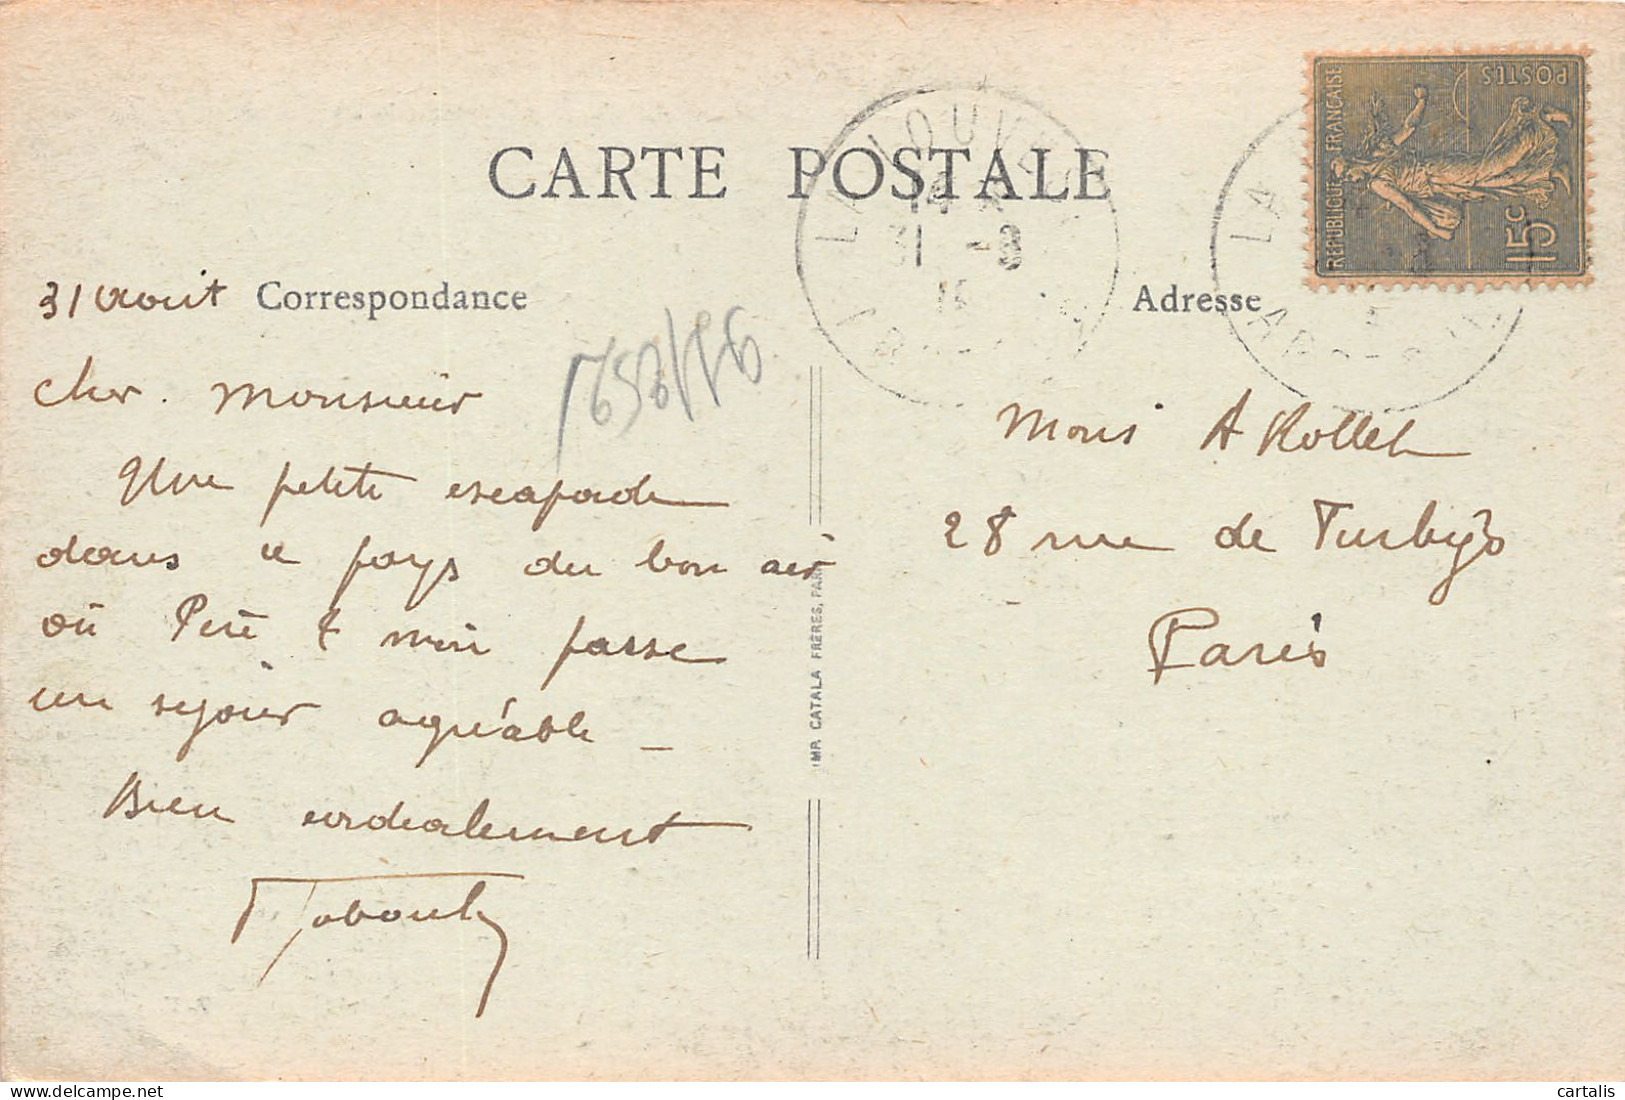 CARTE POSTALE
LA LOUVE
14
31 -8
LA
REPUBLIQUE FRANÇAISE
POSTES
15c
31 Aout
Correspondance
Adresse
Cher Monsieur
Une petite escapade
dans ce pays du bon air
où Père & moi passe
un séjour agréable _
Bien cordialement
Mons A Rollet
28 rue de Turbigo
Paris
IMP. CATALA FRÈRES, PARIS
cartalis